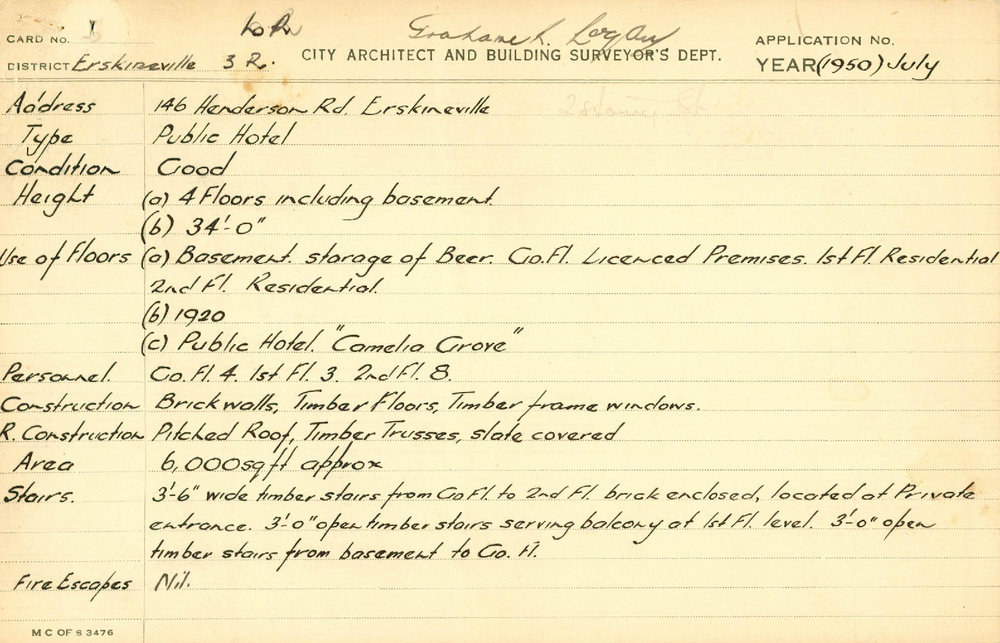 CARD NO. 1
CITY ARCHITECT AND BUILDING SURVEYOR'S DEPT.
APPLICATION NO.
DISTRICT Erskineville 3 R.
YEAR (1950) July
Address 146 Henderson Rd. Erskineville
Type Public Hotel
Condition Good
Height (a) 4 Floors including basement.
(b) 34'-0"
Use of Floors (a) Basement. storage of Beer. Go.Fl. Licenced Premises. 1st Fl Residential
2nd Fl. Residential.
(b) 1920
(c) Public Hotel. "Camelia Grove"
Personnel. Go. Fl. 4. 1st Fl. 3. 2nd Fl. 8.
Construction Brick walls, Timber Floors, Timber frame windows.
R. Construction Pitched Roof, Timber Trusses, slate covered
Area 6,000 sq ft approx
Stairs. 3'-6" wide timber stairs from Go Fl. to 2nd Fl. brick enclosed, located at Private
entrance. 3'-0" open timber stairs serving balcony at 1st Fl. level. 3'-0" open
timber stairs from basement to Go. Fl.
Fire Escapes Nil.
M C OF S 3476